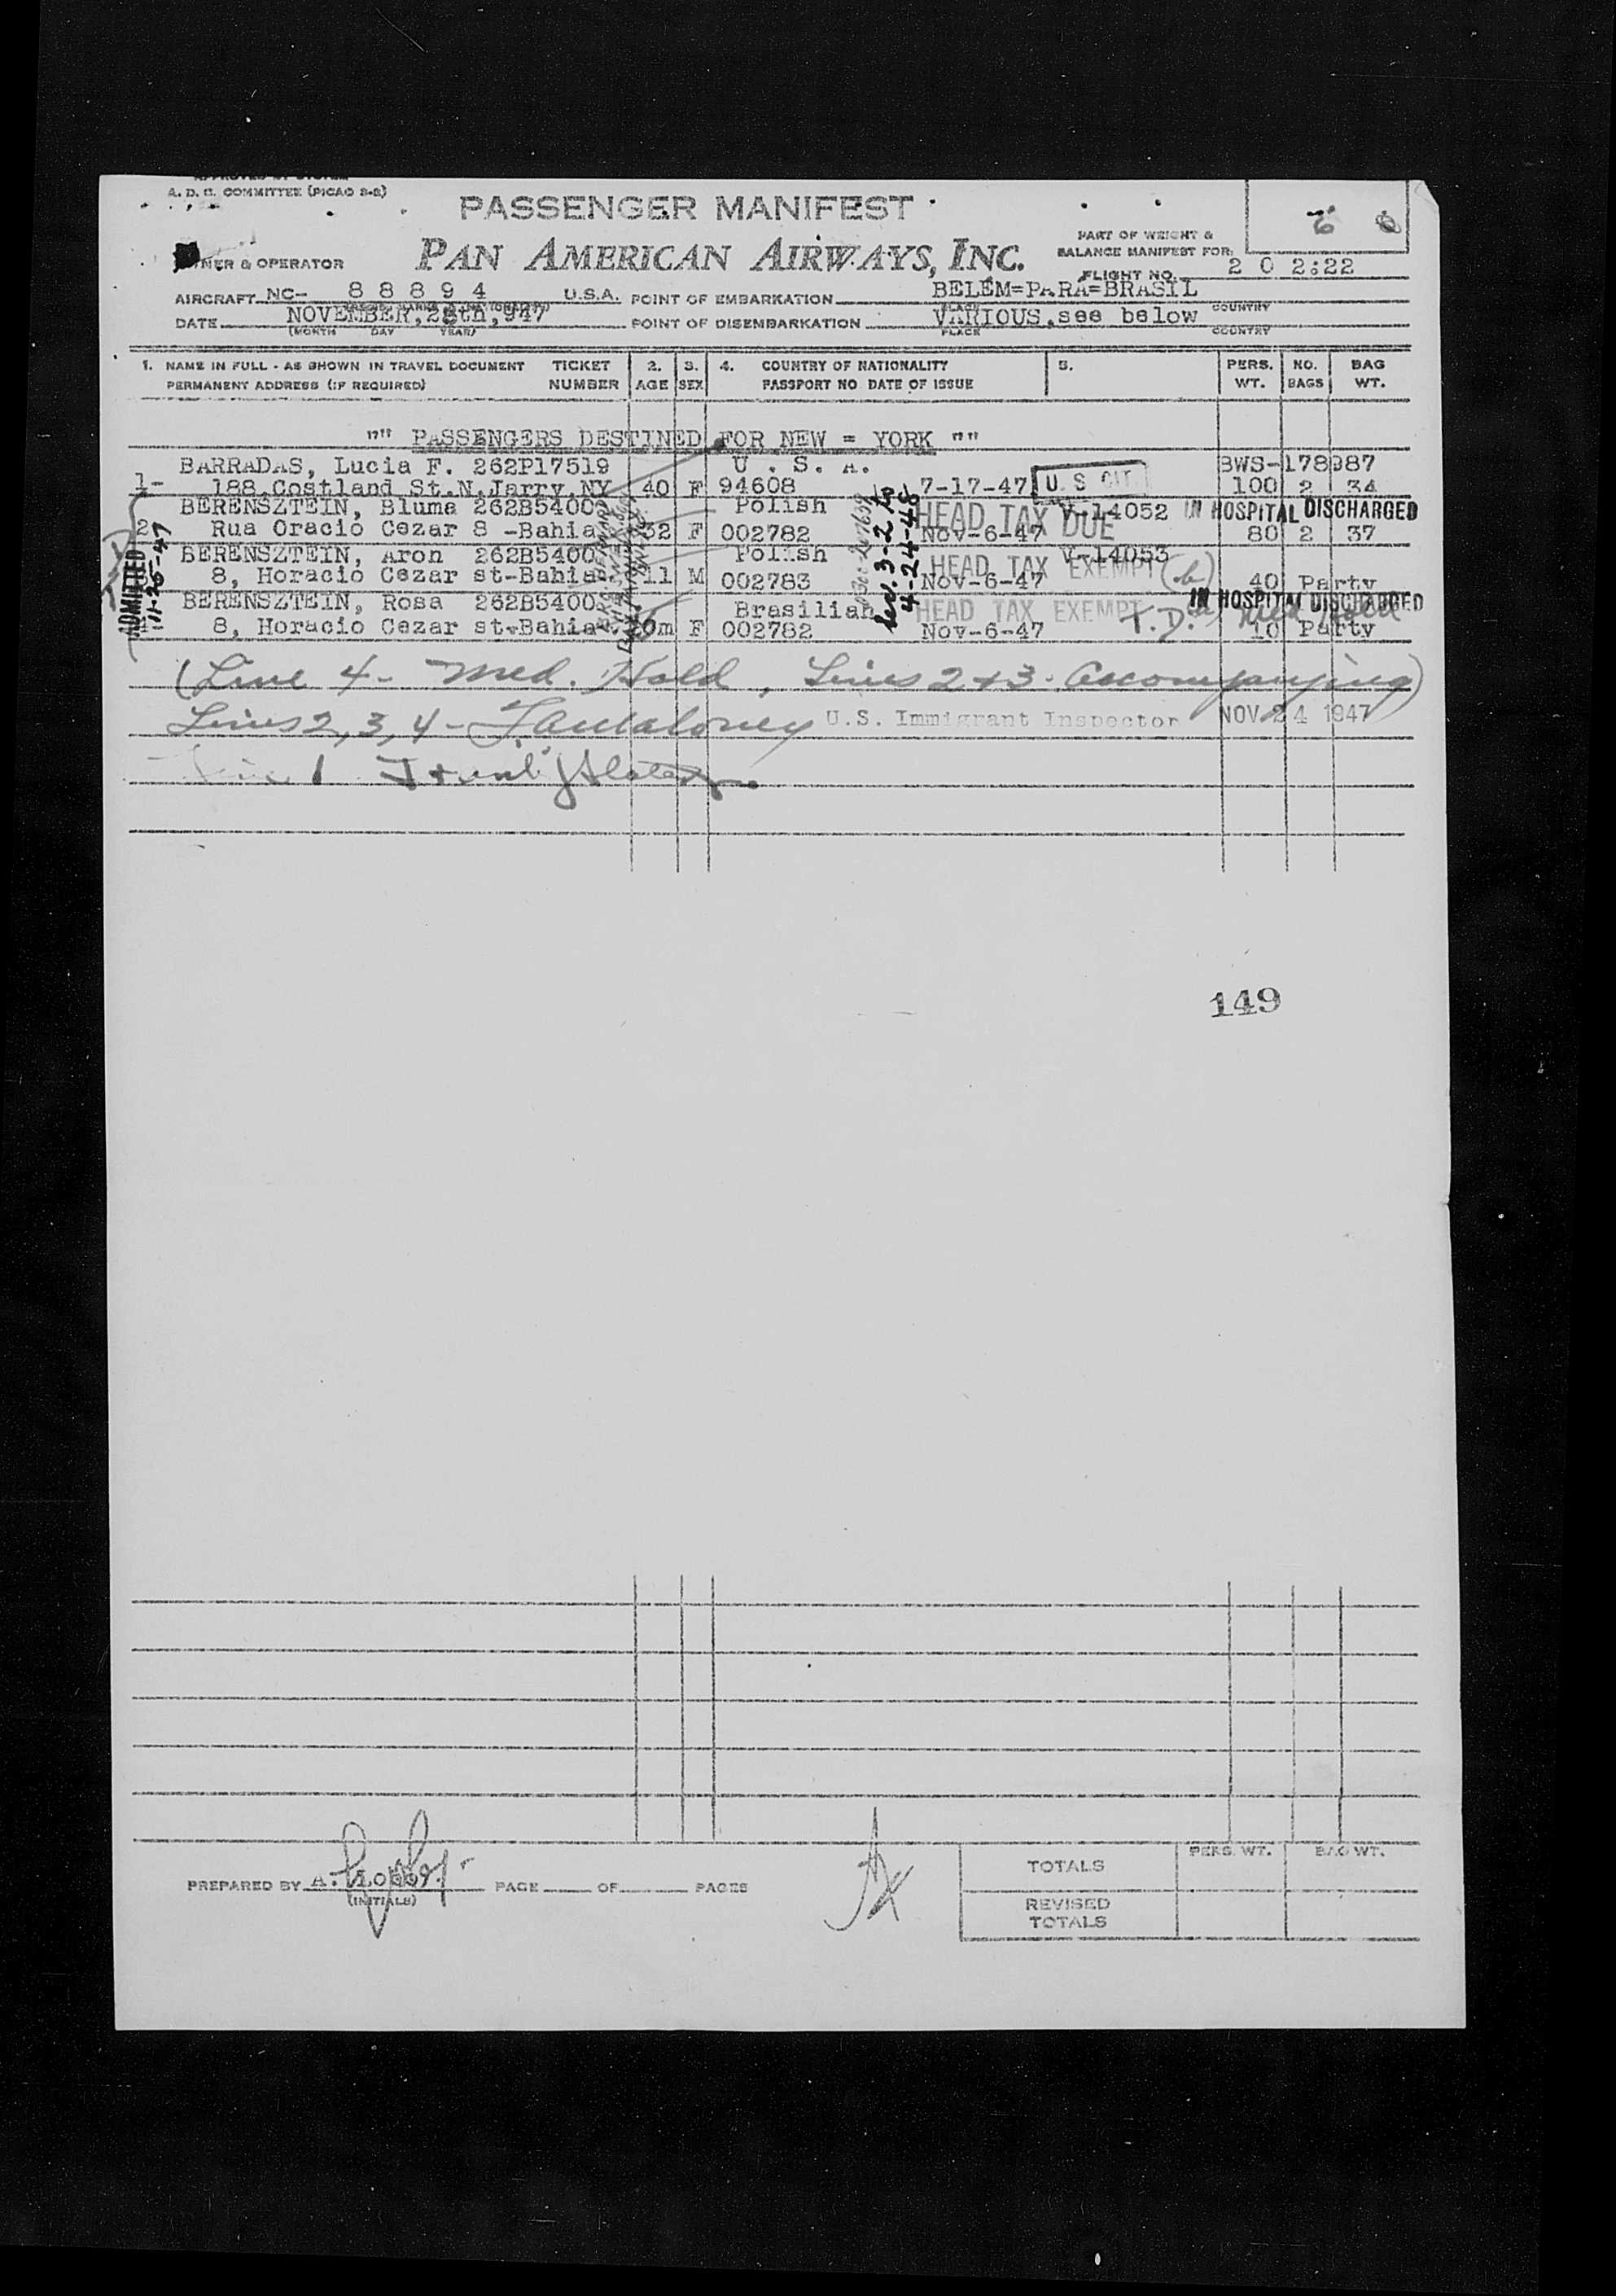 A. D. C. COMMITTEE (PICAO 2-2)
PASSENGER MANIFEST
OWNER & OPERATOR
PAN AMERICAN AIRWAYS, INC.
PART OF WEIGHT &
BALANCE MANIFEST FOR:
FLIGHT NO. 2 0 2:22
AIRCRAFT NC- 8 8 8 9 4 U.S.A. POINT OF EMBARKATION BELEM=PARA=BRASIL
COUNTRY
DATE NOVEMBER, 947 POINT OF DISEMBARKATION VARIOUS, see below
(MONTH DAY YEAR) PLACE COUNTRY
1. NAME IN FULL - AS SHOWN IN TRAVEL DOCUMENT TICKET 2. 3. 4. COUNTRY OF NATIONALITY 5. PERS. NO. BAG
PERMANENT ADDRESS (IF REQUIRED) NUMBER AGE SEX PASSPORT NO DATE OF ISSUE WT. BAGS WT.
"" PASSENGERS DESTINED FOR NEW = YORK ""
BARRADAS, Lucia F. 262P17519 U . S. A. BWS-178987
1- 188,Costland St.N.Jarry.NY 40 F 94608 7-17-47 U. S CIT 100 2 34
BERENSZTEIN, Bluma 262B54002 Polish HEAD TAX DUE V-14052 IN HOSPITAL DISCHARGED
2 Rua Oracio Cezar 8 -Bahia 32 F 002782 Nov-6-47 80 2 37
BERENSZTEIN, Aron 262B5400 Polish HEAD TAX EXEMPT V-14053
8, Horacio Cezar st-Bahia 11 M 002783 Nov-6-47 (b) 40 Party
BERENSZTEIN, Rosa 262B5400 Brasilian HEAD TAX EXEMPT T.D. IN HOSPITAL DISCHARGED
4- 8, Horacio Cezar st-Bahia m F 002782 Nov-6-47 10 Party
ADMITTED
11-26-47
Sec. 3-2 to
4-24-48
(Line 4- Med. Hold, Lines 2+3- Accompanying)
Lines 2, 3, 4 - U.S. Immigrant Inspector NOV 24 1947
149
PREPARED BY A. (INITIALS) PAGE OF PAGES
TOTALS PERS. WT. BAG WT.
REVISED
TOTALS